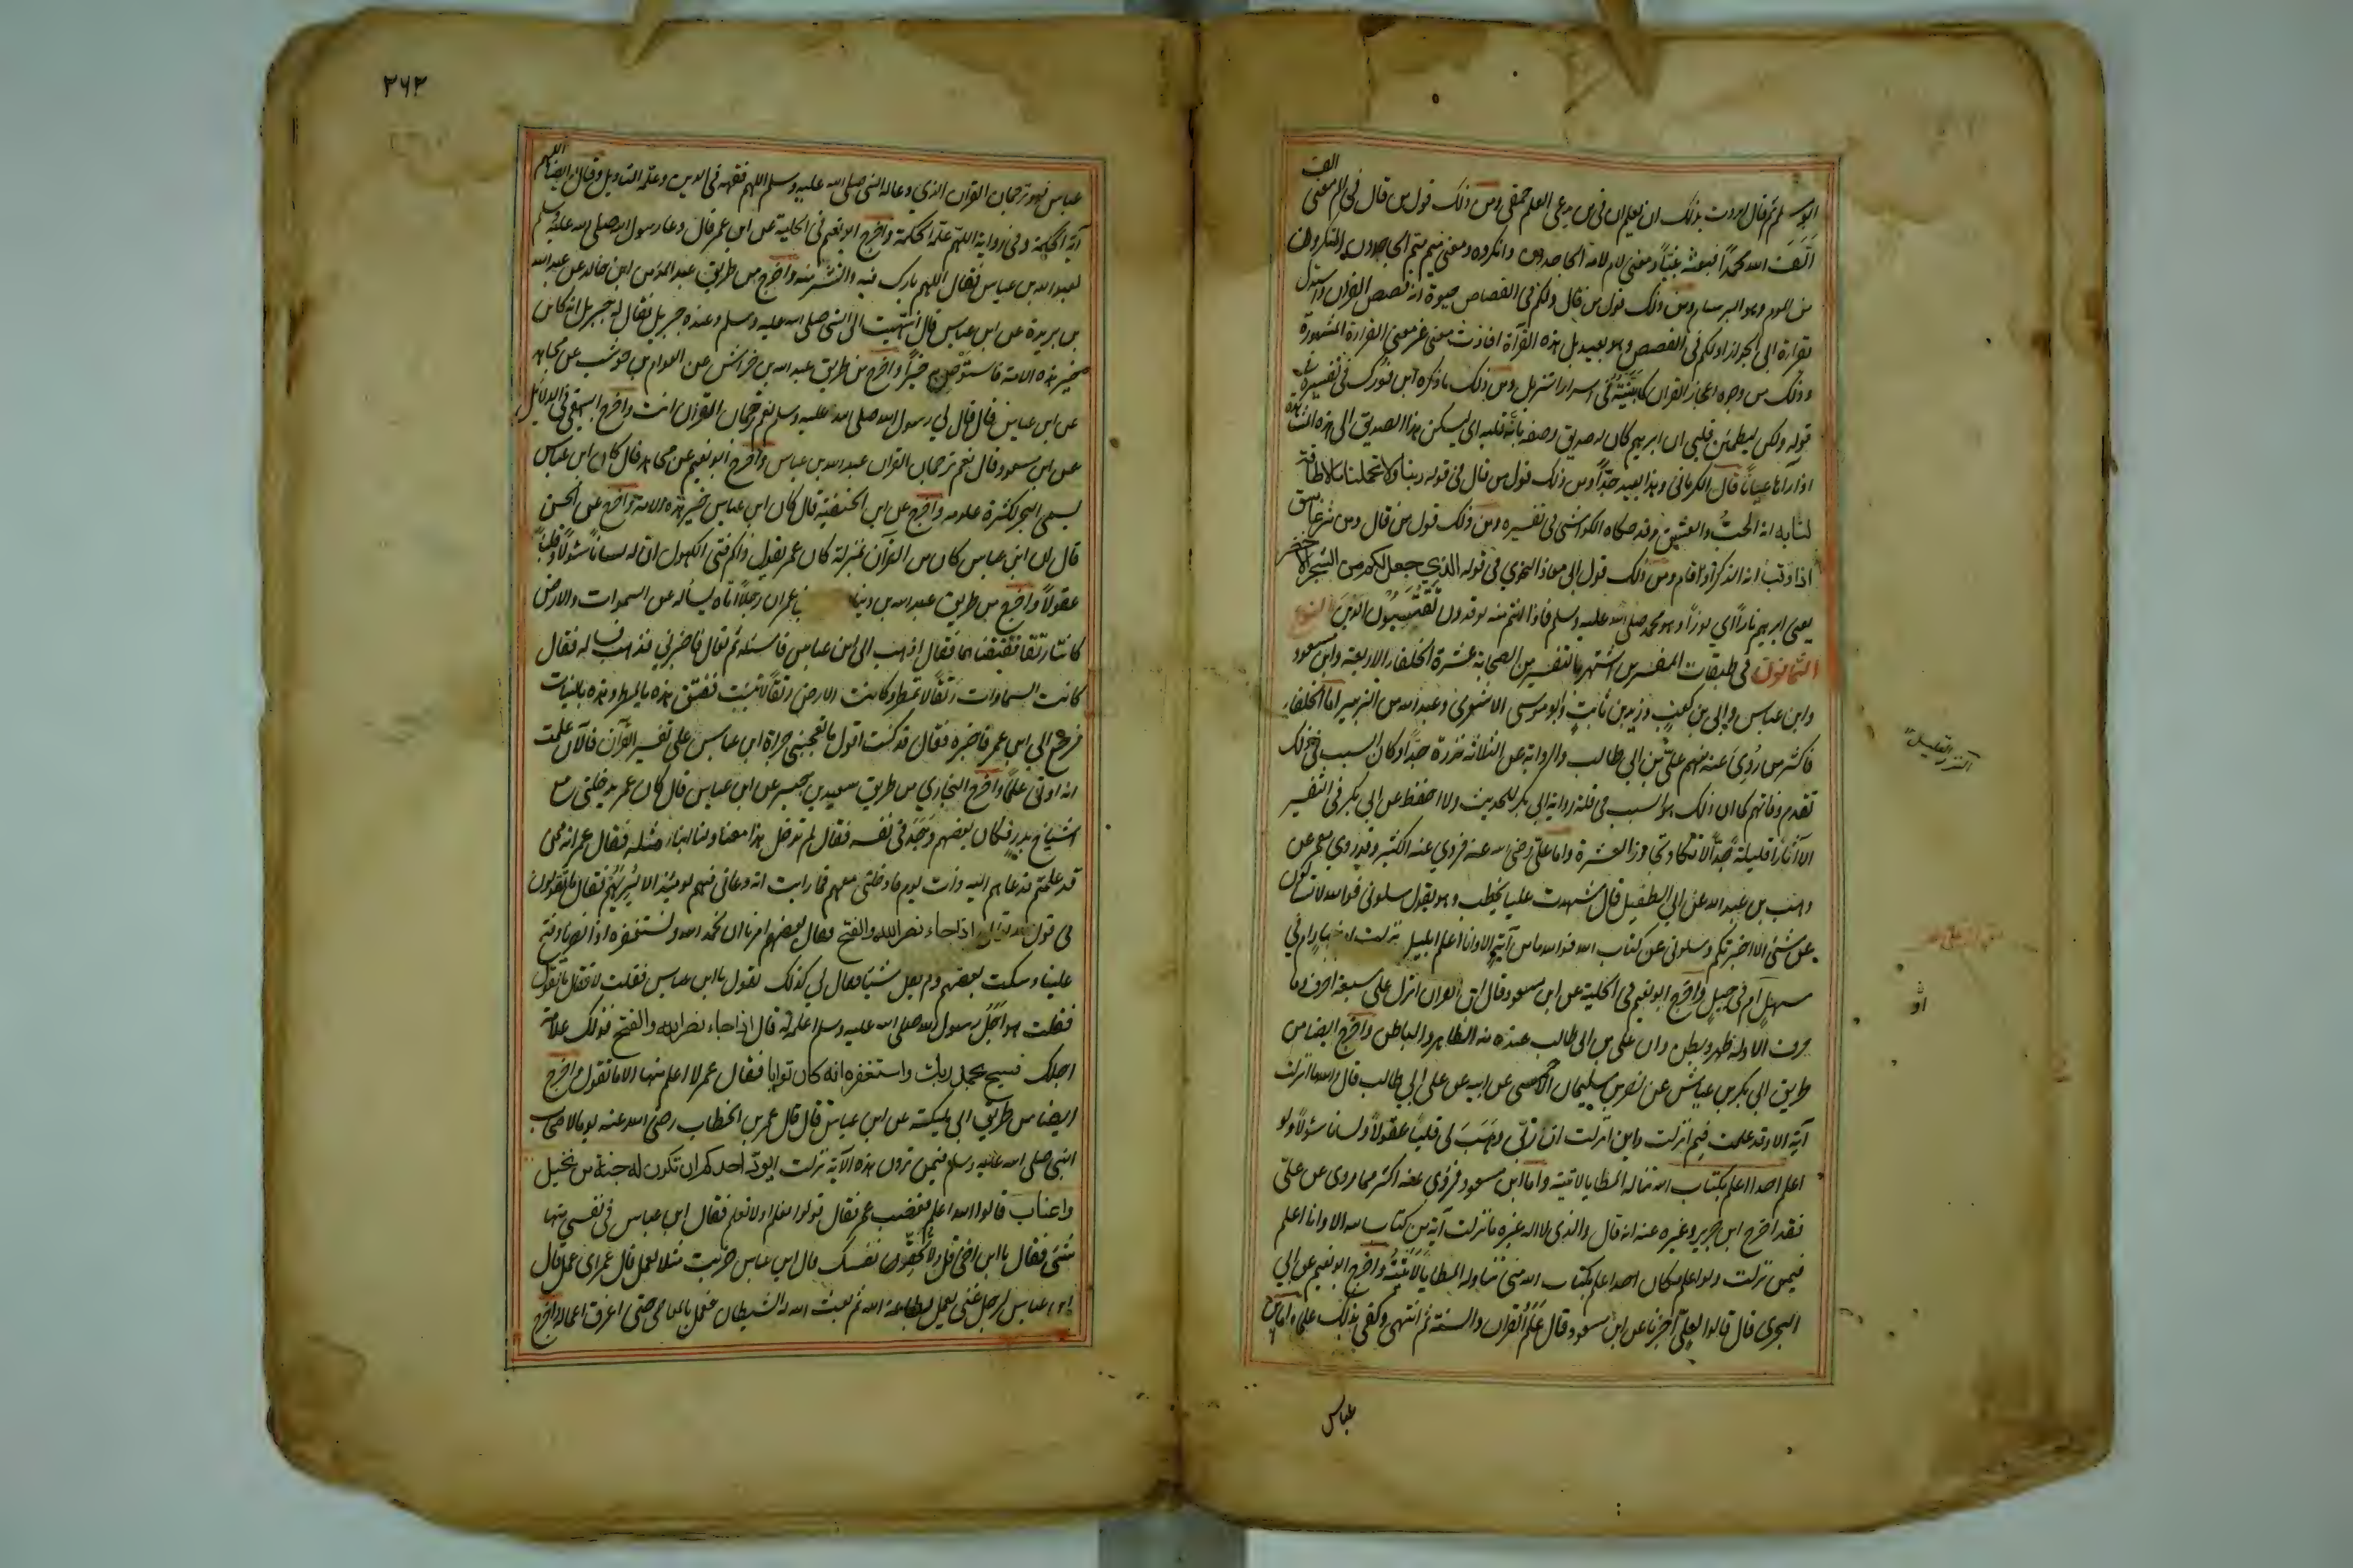 ابو مسلم ثم قال اردت بذلك ان يعلم ان في من يدعي العلم حمقى ومن ذلك قول من قال في الم معنى الف
الف الله محمدا فبعثه نبيا ومعنى لام لامه الجاحدون وانكروه ومعنى ميم ميم الجاحدون المنكرون
من الموم وهو البرسام ومن ذلك قول من قال ولكم في القصاص حيوة انه قصص القرآن واستدل
بقراءة ابي الجوزاء ولكم في القصص وهو بعيد بل هذه القرآة افادت معنى غير معنى القراءة المشهورة
وذلك من وجوه اعجاز القرآن كما بينته في اسرار التنزيل ومن ذلك ما ذكره ابن فورك في تفسيره في
قوله ولكن ليطمئن قلبي ان ابرهيم كان له صديق وصفه بانه قلبه اي ليسكن هذا الصديق الى هذه المشاهدة
اذا رآها عيانا قال الكرماني وهذا بعيد جدا ومن ذلك قول من قال في قوله ربنا ولا تحملنا ما لا طاقة
لنا به انه الحب والعشق وقد حكاه الكواشي في تفسيره ومن ذلك قول من قال ومن شر غاسق
اذا وقب انه الذكر اذا قام ومن ذلك قول ابي معاذ النحوي في قوله الذي جعل لكم من الشجر الاخضر
يعني ابرهيم نارا اي نورا وهو محمد صلى الله عليه وسلم فاذا انتم منه توقدون تقتبسون الدين النوع
الثمانون في طبقات المفسرين اشتهر بالتفسير من الصحابة عشرة الخلفاء الاربعة وابن مسعود
وابن عباس وابي بن كعب وزيد بن ثابت وابو موسى الاشعري وعبد الله بن الزبير اما الخلفاء
فاكثر من روي عنه منهم علي بن ابي طالب والرواية عن الثلاثة نزرة جدا وكان السبب في ذلك
تقدم وفاتهم كما ان ذلك هو السبب في قلة رواية ابي بكر للحديث ولا احفظ عن ابي بكر في التفسير
الا آثارا قليلة جدا لا تكاد تجاوز العشرة واما علي رضي الله عنه فروي عنه الكثير وقد روي معمر عن
وهب بن عبد الله عن ابي الطفيل قال شهدت عليا يخطب وهو يقول سلوني فوالله لا تسألون
عن شئ الا اخبرتكم وسلوني عن كتاب الله فوالله ما من آية الا وانا اعلم ابليل نزلت ام بنهار ام في
سهل ام في جبل واخرج ابو نعيم في الحلية عن ابن مسعود قال ان القرآن انزل على سبعة احرف ما
حرف الا وله ظهر وبطن وان علي بن ابي طالب عنده منه الظاهر والباطن واخرج ايضا من
طريق ابي بكر بن عياش عن نصير بن سليمان الاحمسي عن ابيه عن علي ابي طالب قال والله ما نزلت
آية الا وقد علمت فيم انزلت واين انزلت ان ربي وهب لي قلبا عقولا ولسانا سئولا ولو
اعلم احدا اعلم بكتاب الله تناله المطايا لاتيته واما ابن مسعود فروي عنه اكثر مما روي عن علي
فقد اخرج ابن جرير وغيره عنه انه قال والذي لا اله غيره ما نزلت آية من كتاب الله الا وانا اعلم
فيمن نزلت ولو اعلم مكان احد اعلم بكتاب الله مني تناوله المطايا لاتيته واخرج ابو نعيم عن ابي
البحري قال قالوا لعلي اخبرنا عن ابن مسعود قال علم القرآن والسنة ثم انتهى وكفى بذلك علما واما ابن
عباس
او
٢٦٢
عباس فهو ترجمان القرآن الذي دعا له النبي صلى الله عليه وسلم اللهم فقهه في الدين وعلمه التأويل وقال له ايضا اللهم
آته الحكمة وفي رواية اللهم علمه الحكمة واخرج ابو نعيم في الحلية عن ابن عمر قال دعا رسول الله صلى الله عليه وسلم
لعبد الله بن عباس فقال اللهم بارك فيه وانشر منه واخرج من طريق عبد المؤمن ابن خالد عن عبد الله
بن بريدة عن ابن عباس قال انتهيت الى النبي صلى الله عليه وسلم وعنده جبريل فقال له جبريل انه كائن
حبر هذه الامة فاستوص به خيرا واخرج من طريق عبد الله بن خراش عن العوام بن حوشب عن مجاهد
عن ابن عباس قال قال لي رسول الله صلى الله عليه وسلم نعم ترجمان القرآن انت واخرج البيهقي في الدلائل
عن ابن مسعود قال نعم ترجمان القرآن عبد الله بن عباس واخرج ابو نعيم عن مجاهد قال كان ابن عباس
يسمى البحر لكثرة علومه واخرج عن ابن الحنفية قال كان ابن عباس حبر هذه الامة واخرج عن الحسن
قال ان ابن عباس كان من القرآن بمنزلة كان عمر يقول ذاكم فتى الكهول ان له لسانا سئولا وقلبا
عقولا واخرج من طريق عبد الله بن دينا عمر ان رجلا اتاه يسأله عن السموات والارض
كانتا رتقا ففتقناهما فقال اذهب الى ابن عباس فاسئله ثم تعال فاخبرني فذهب فسأله فقال
كانت السماوات رتقا لا تمطر وكانت الارض رتقا لا تنبت ففتق هذه بالمطر وهذه بالنبات
فرجع الى ابن عمر فاخبره فقال قد كنت اقول ما تعجبني جراة ابن عباس على تفسير القرآن فالآن علمت
انه اوتي علما واخرج البخاري من طريق سعيد بن جبير عن ابن عباس قال كان عمر يدخلني مع
اشياخ بدر فكان بعضهم وجد في نفسه فقال لم تدخل هذا معنا ولنا ابناء مثله فقال عمر انه ممن
قد علمتم فدعاهم اليه ذات يوم فادخلني معهم فما رايت انه دعاني فيهم يومئذ الا ليريهم فقال ما تقولون
في قول الله تعالى اذا جاء نصر الله والفتح فقال بعضهم امرنا ان نحمد الله ونستغفره اذا نصرنا وفتح
علينا وسكت بعضهم ولم يقل شيئا فقال لي كذلك تقول يا ابن عباس فقلت لا فقال ما تقول
فقلت هو اجل رسول الله صلى الله عليه وسلم اعلمه له قال اذا جاء نصر الله والفتح فذلك علامة
اجلك فسبح بحمد ربك واستغفره انه كان توابا فقال عمر لا اعلم منها الا ما تقول واخرج
ايضا من طريق ابن ابي مليكة عن ابن عباس قال قال عمر بن الخطاب رضي الله عنه يوما لاصحاب
النبي صلى الله عليه وسلم فيمن ترون هذه الآية نزلت ايود احدكم ان تكون له جنة من نخيل
واعناب قالوا الله اعلم فغضب عمر فقال قولوا نعلم او لا نعلم فقال ابن عباس في نفسي منها
شئ فقال يا ابن اخي قل ولا تحقر نفسك قال ابن عباس ضربت مثلا لعمل قال عمر اي عمل قال
ابن عباس لرجل غني يعمل بطاعة الله ثم بعث الله له الشيطان فعمل بالمعاصي حتى اغرق اعماله واخرج